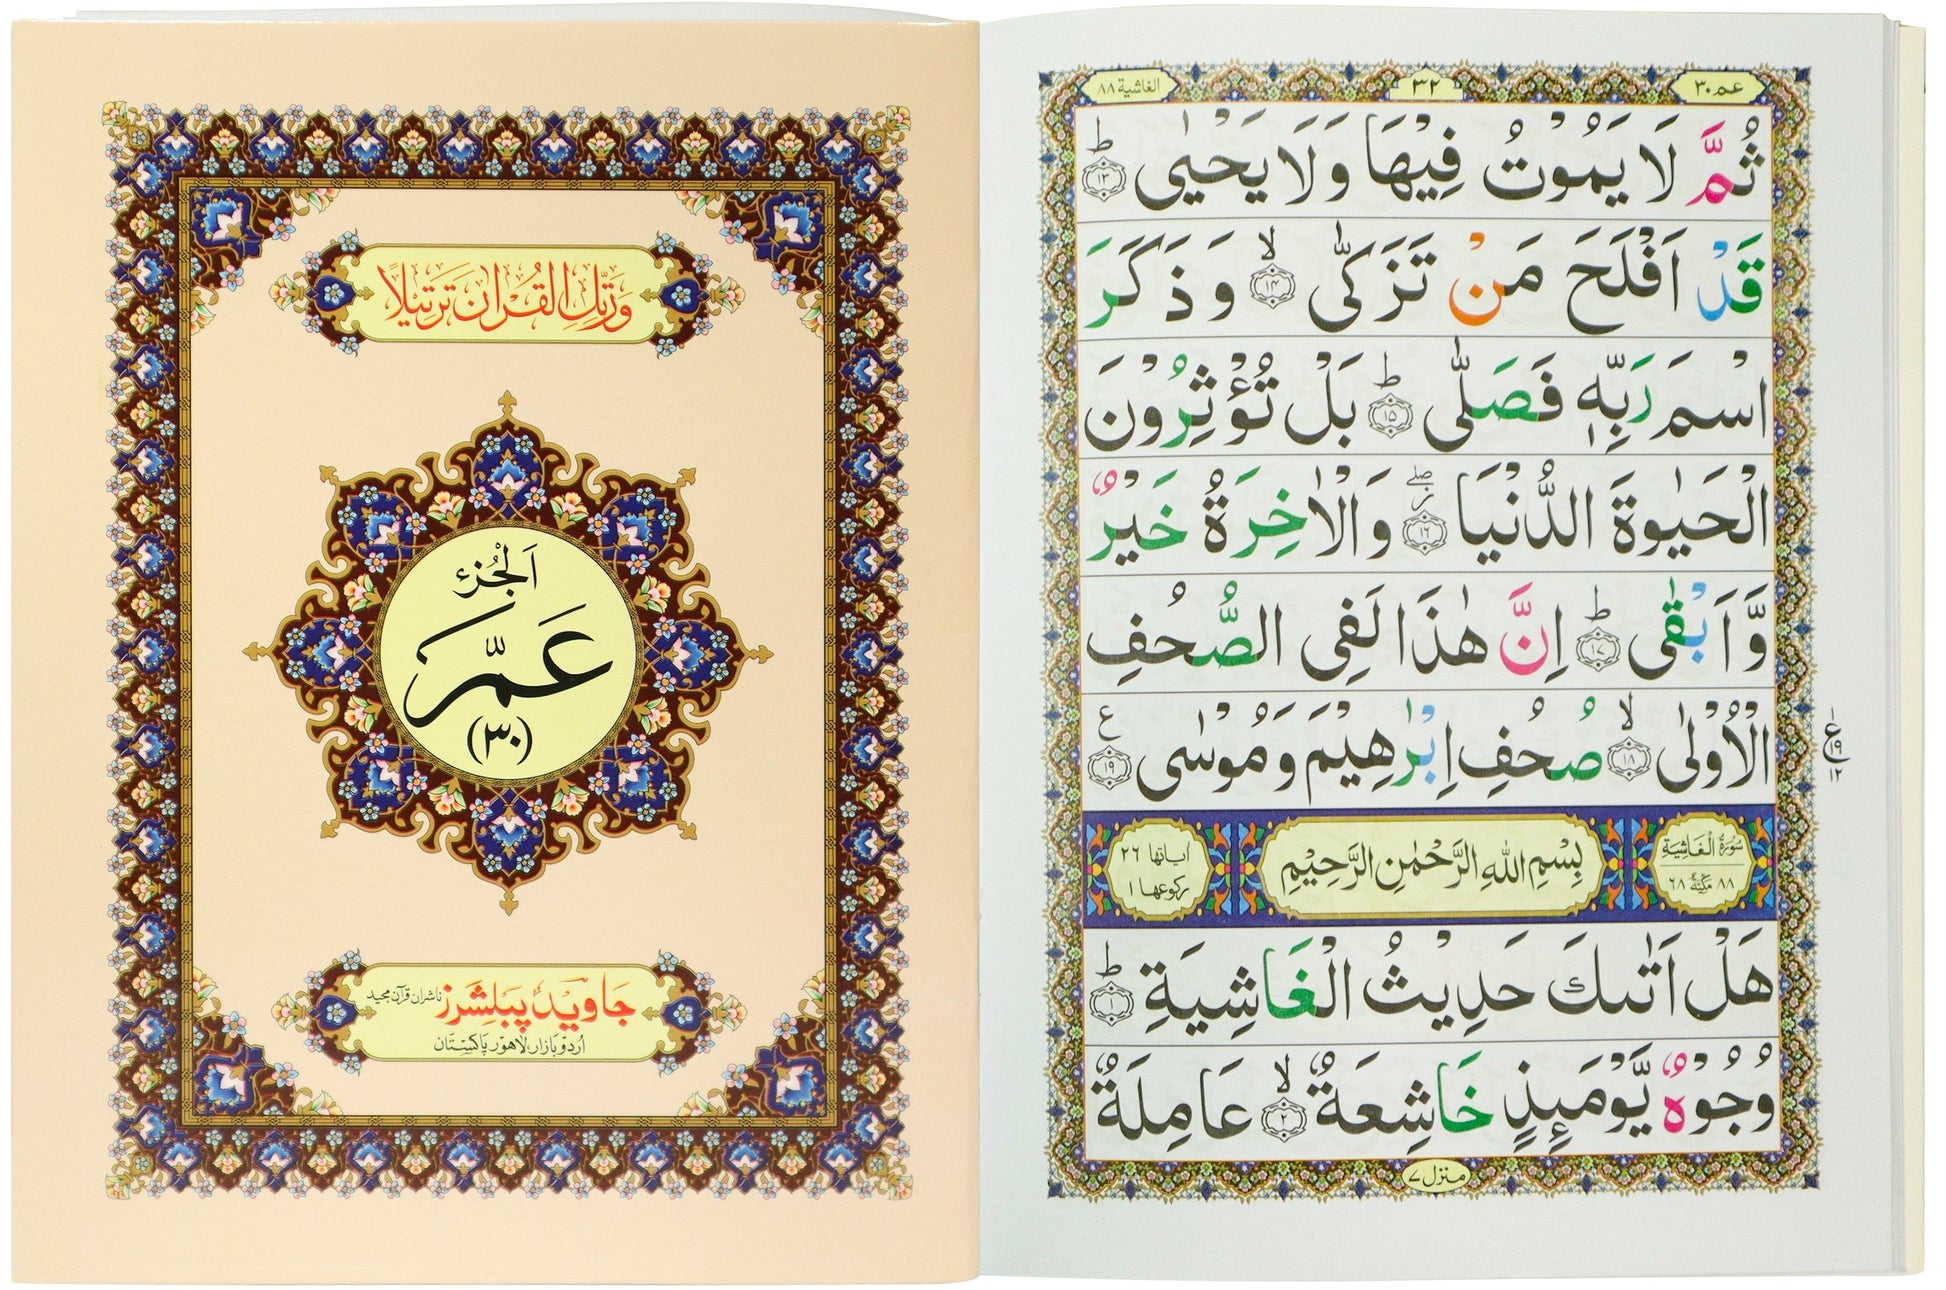 وَرَتِّلِ الْقُرْاٰنَ تَرْتِيْلًا
اَلْجُزْءُ
عَمَّ
(٣٠)
جاوید پبلشرز ناشران قرآن مجید
اُردو بازار، لاہور پاکستان
عم ٣٠ ٣٢ الغاشية ٨٨
ثُمَّ لَا يَمُوْتُ فِيْهَا وَلَا يَحْيٰى ؕ ١٣
قَدْ اَفْلَحَ مَنْ تَزَكّٰى ۙ ١٤ وَ ذَكَرَ
اسْمَ رَبِّهٖ فَصَلّٰى ؕ ١٥ بَلْ تُؤْثِرُوْنَ
الْحَيٰوةَ الدُّنْيَا ۖ ز ١٦ وَالْاٰخِرَةُ خَيْرٌ
وَّاَبْقٰى ؕ ١٧ اِنَّ هٰذَا لَفِى الصُّحُفِ
الْاُوْلٰى ۙ ١٨ صُحُفِ اِبْرٰهِيْمَ وَمُوْسٰى ع ١٩
١
ع ١٩
١٢
سُوْرَةُ الْغَاشِيَةِ
٨٨ مَكِّيَّةٌ ٦٨
بِسْمِ اللهِ الرَّحْمٰنِ الرَّحِيْمِ
اٰياتها ٢٦
ركوعها ١
هَلْ اَتٰىكَ حَدِيْثُ الْغَاشِيَةِ ؕ ١
وُجُوْهٌ يَّوْمَئِذٍ خَاشِعَةٌ ۙ ٢ عَامِلَةٌ
منزل ٧